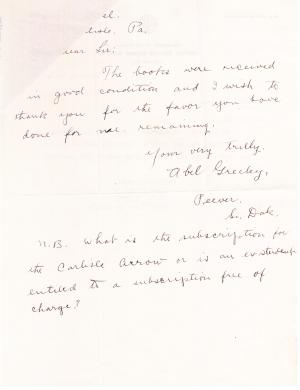 el.
lisle, Pa.
ear Sir:
The books were received
in good condition and I wish to
thank you for the favor you have
done for me. remaining.
Your very trully.
Abel Greeley,
Peever,
So. Dak.
N.B. What is the subscription for
the Carlisle Arrow or is an ex-student
entitled to a subscription free of
charge?